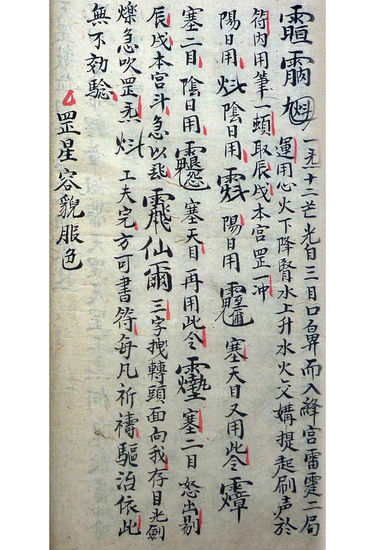 一炁十二芒光自三目口鼻而入絳宮雷霆二局
運用心火下降腎水上升水火交媾提起刷声於
符内用筆一顫取辰戌本宫罡一冲
陽日用 陰日用 陽日用 塞天目又用此令
塞二目陰日用 塞天目再用此令 塞二目怒出剔
辰戌本宫斗急以 仙 三字拽轉頭面向我存目光劍
爍急吹罡炁 工夫完方可書符每凡祈禱驅治依此
無不効驗
罡星容貌服色